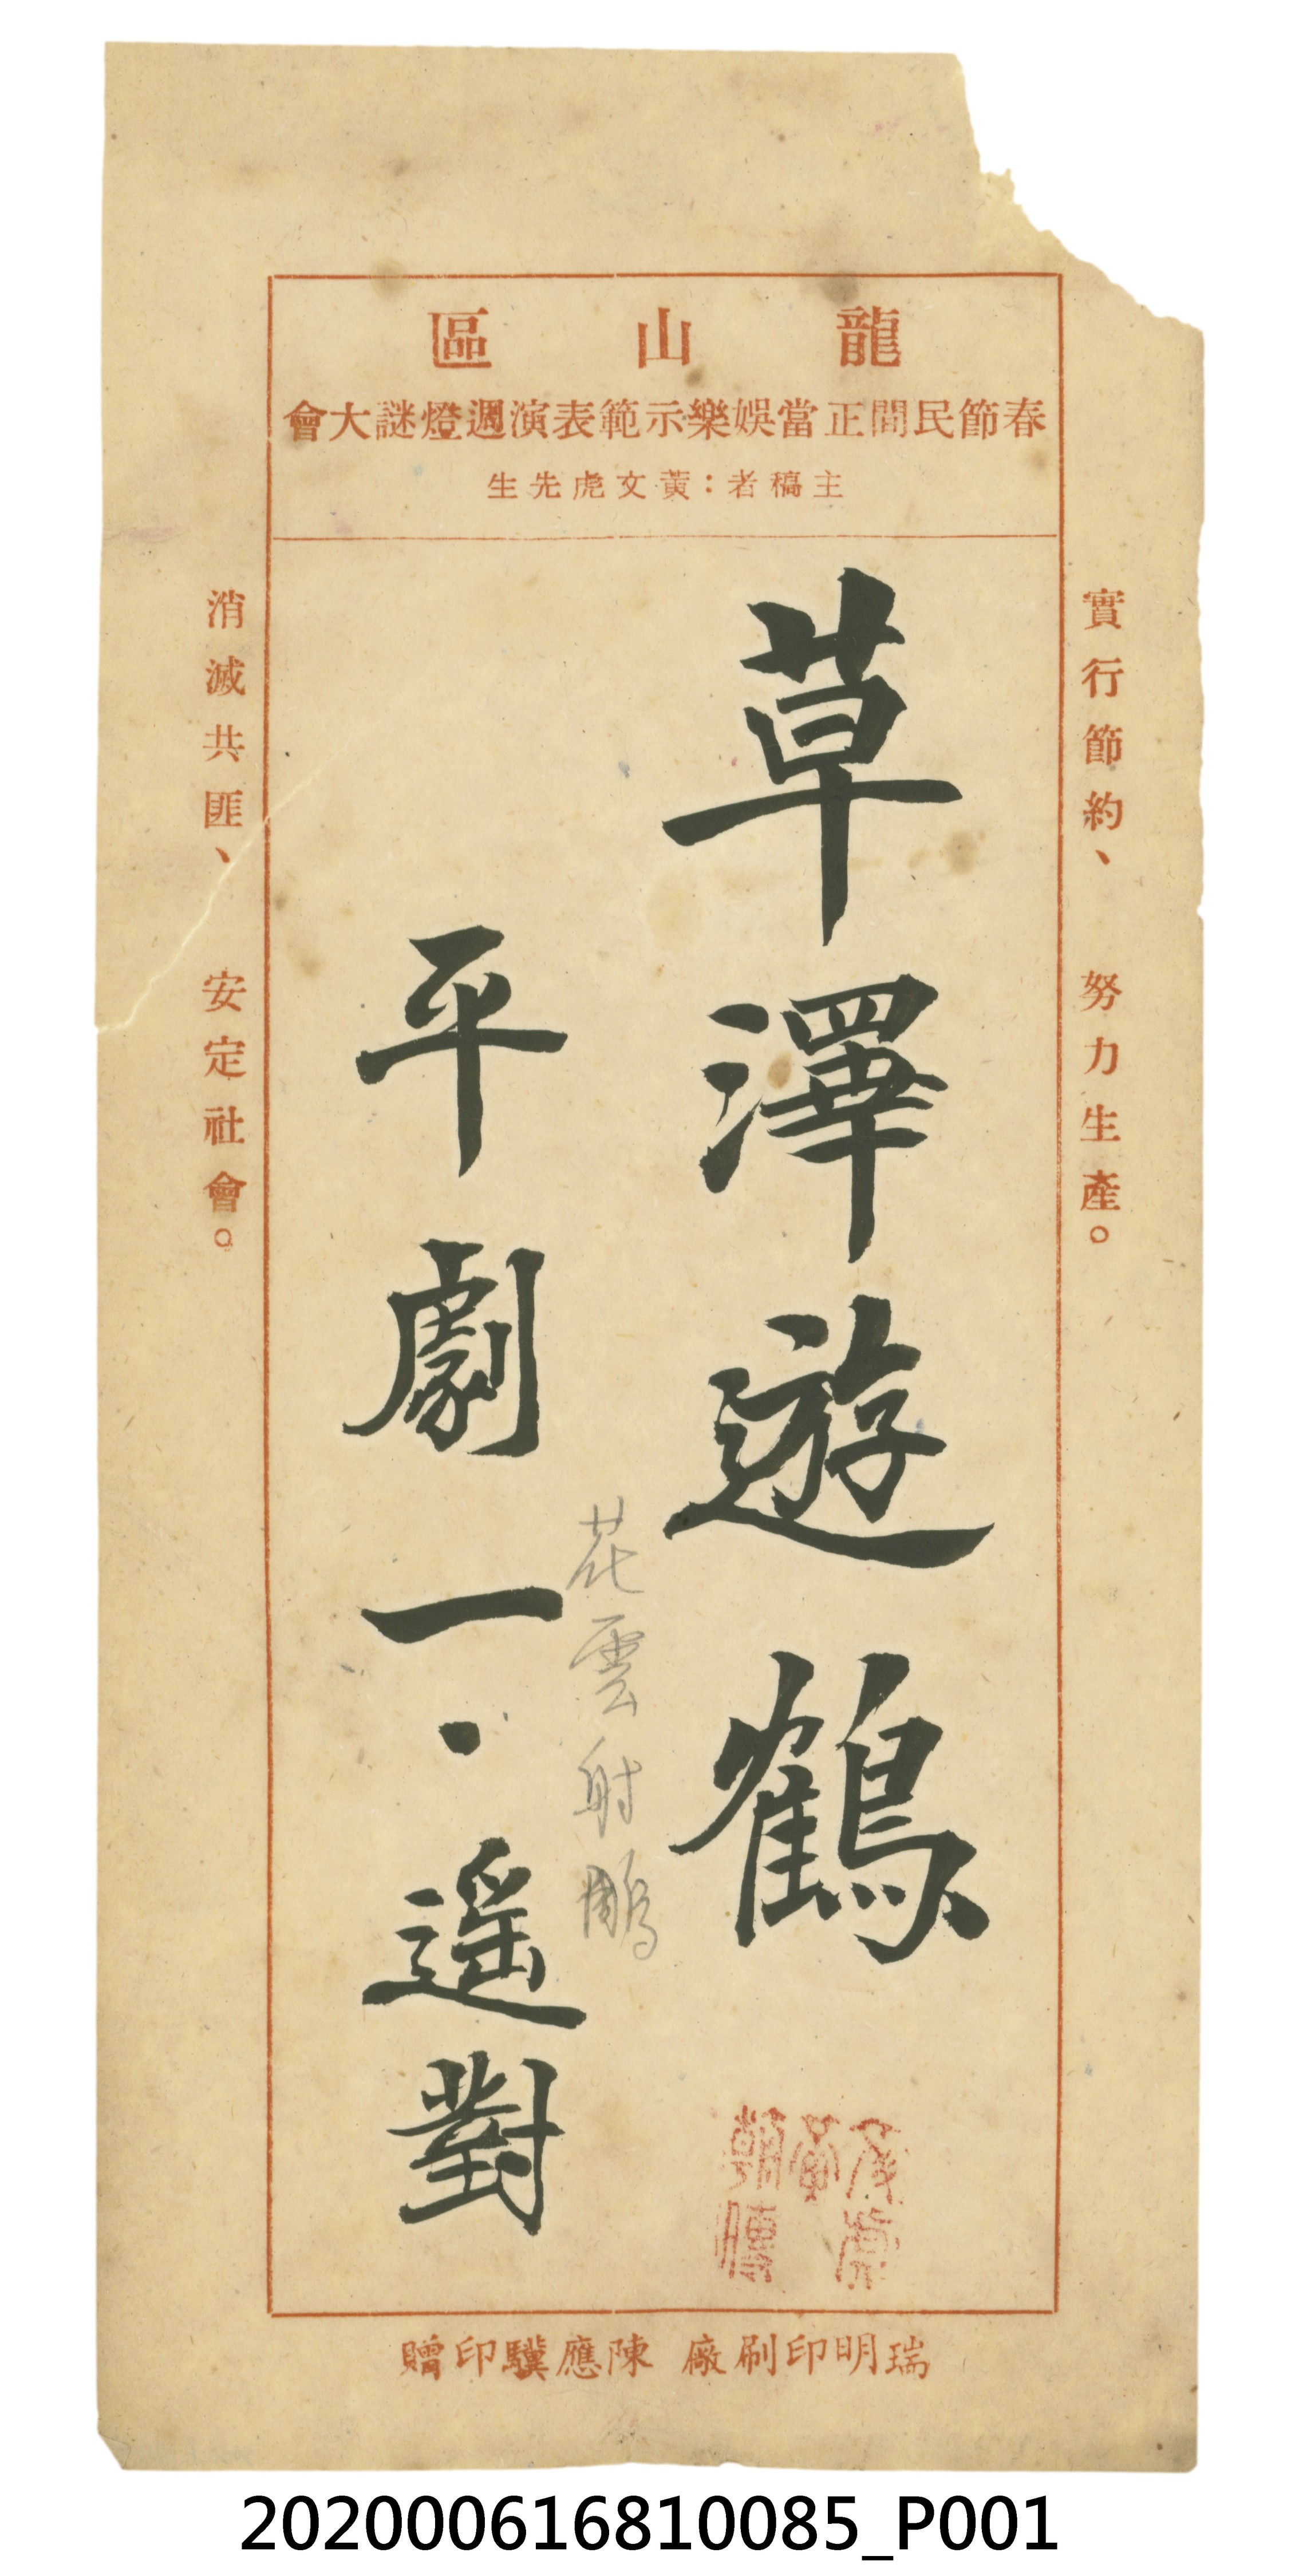 龍山區
春節民間正當娛樂示範表演週燈謎大會
主稿者：黃文虎先生
實行節約、努力生產。
草澤遊鶴
花雲射鵰
平劇一・遥對
消滅共匪、安定社會。
瑞明印刷廠 陳應驥印贈
202000616810085_P001